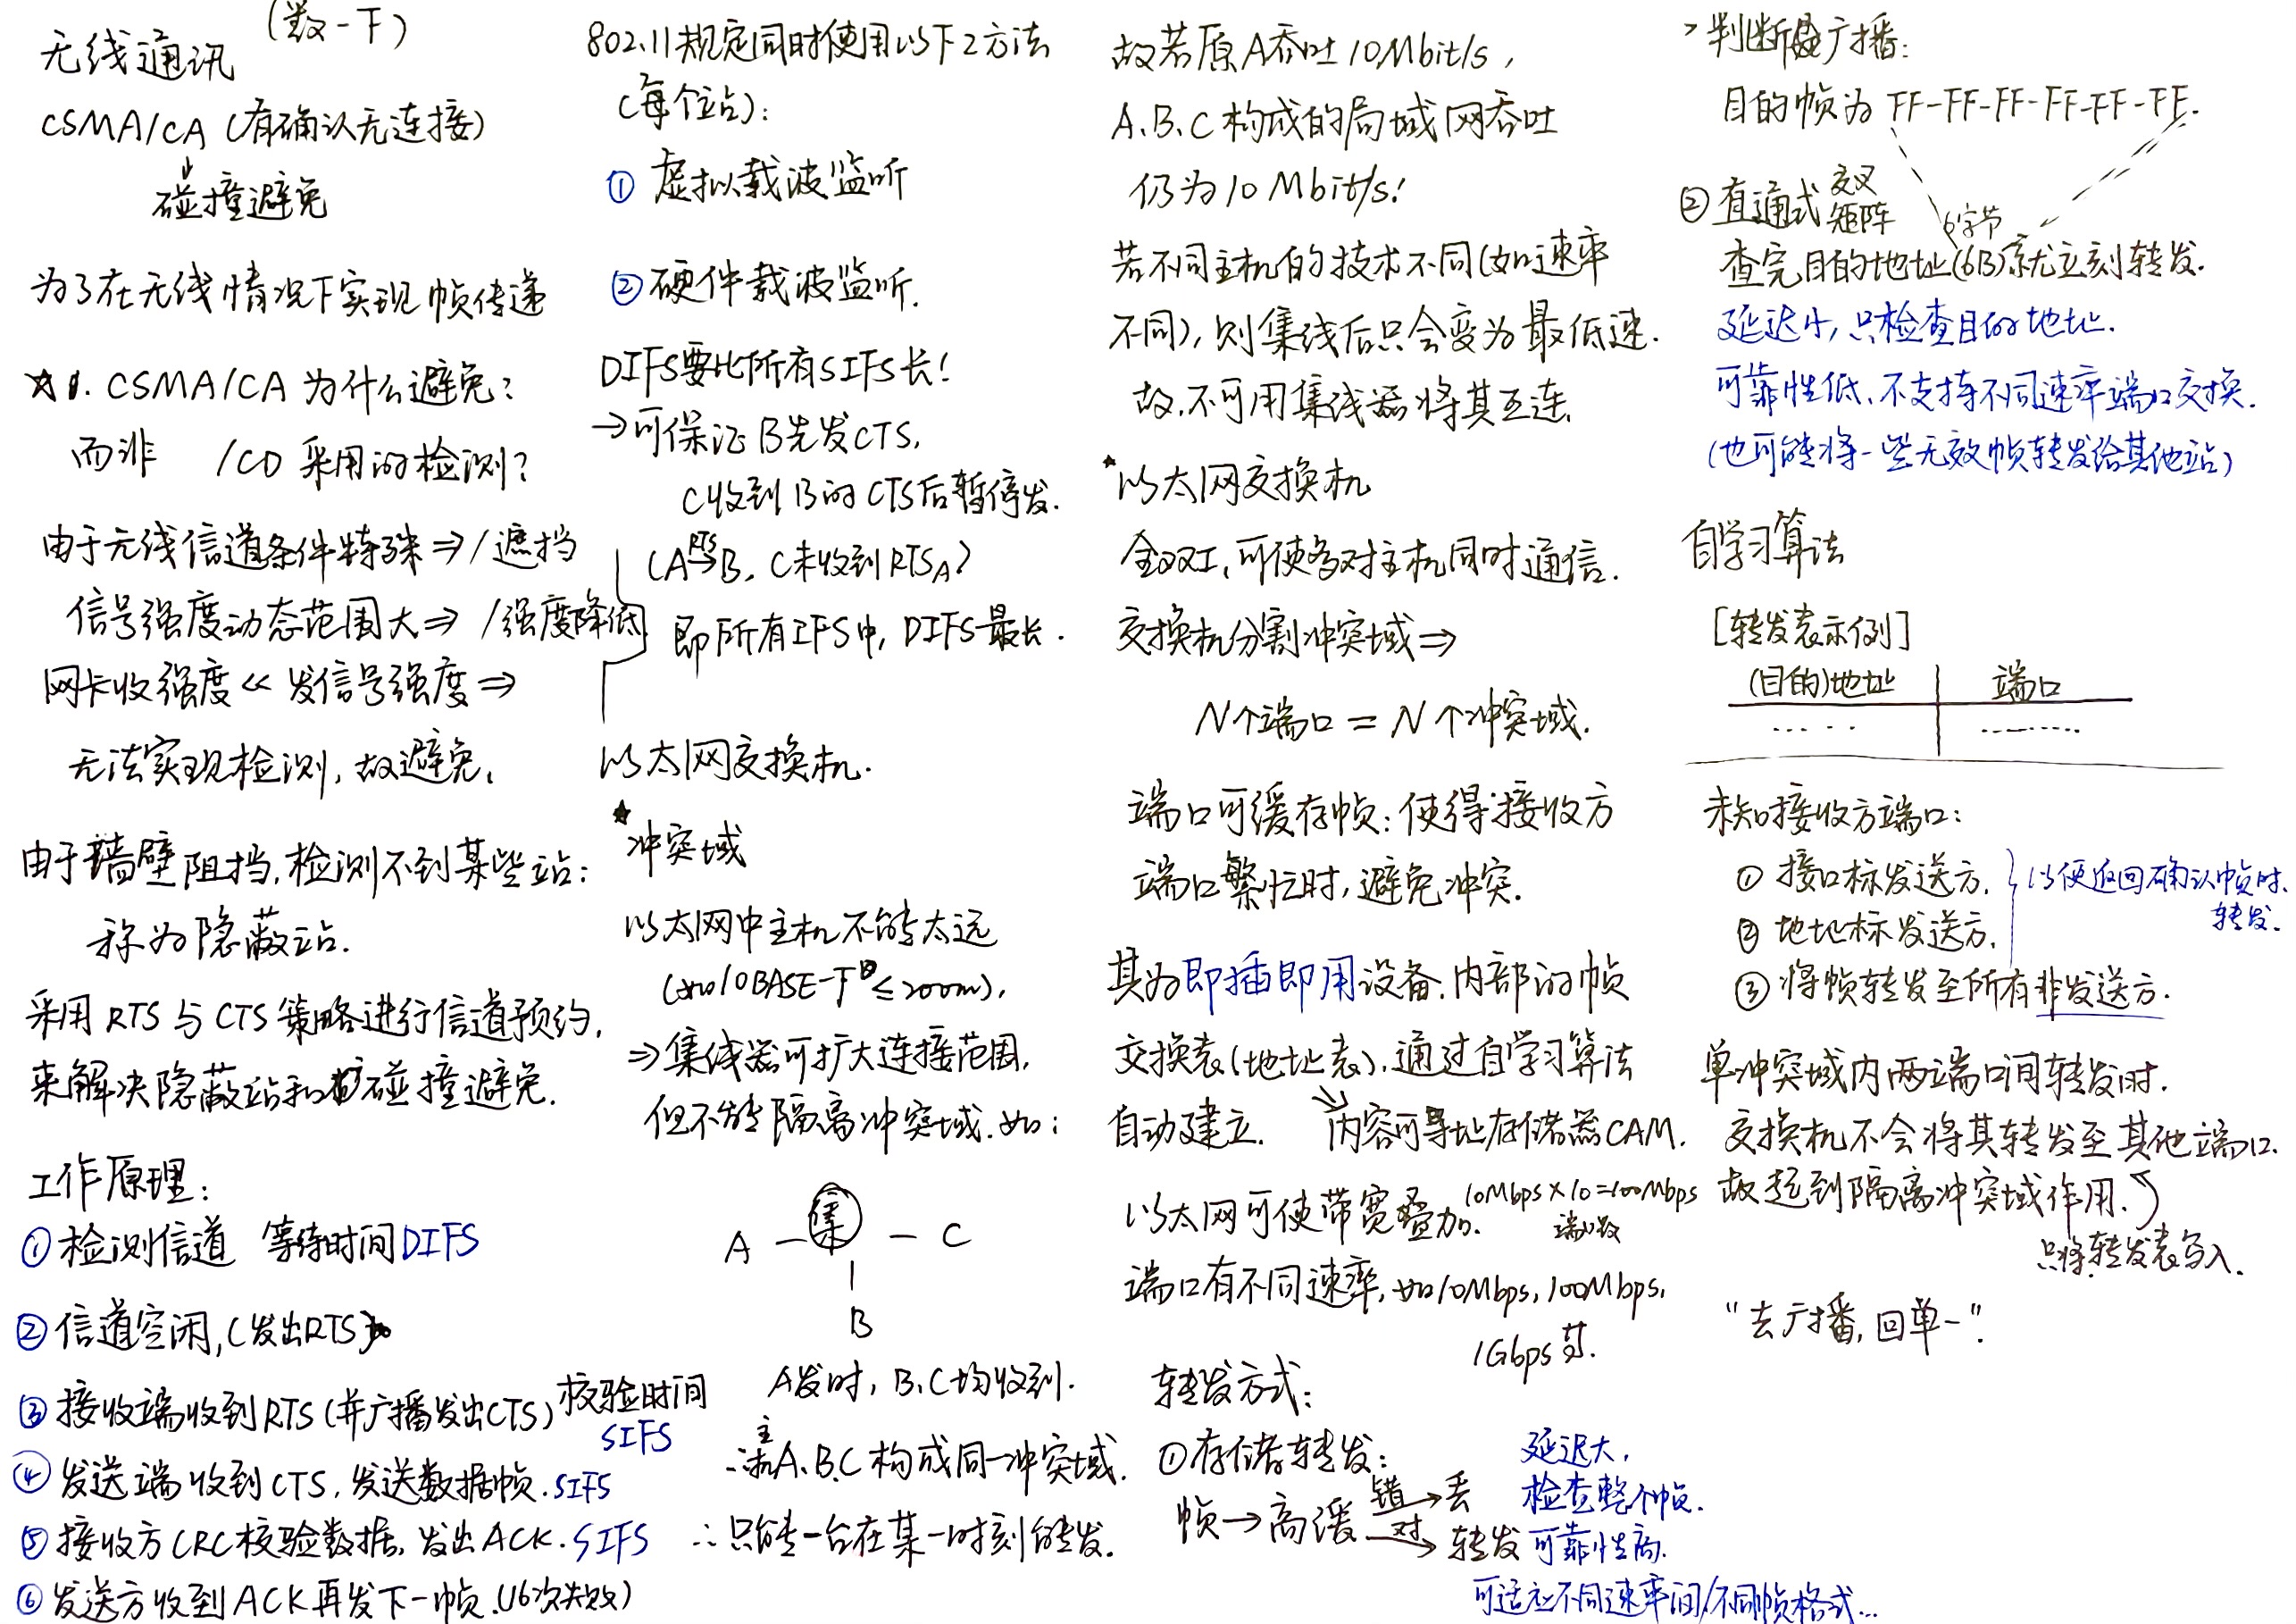 无线通讯
(数一下)
CSMA/CA (有确认无连接)
↓
碰撞避免
为了在无线情况下实现帧传递
☆1. CSMA/CA 为什么避免?
而非 /CD 采用的检测?
由于无线信道条件特殊⇒/遮挡
信号强度动态范围大⇒/强度降低
网卡收强度<<发信号强度⇒
无法实现检测,故避免.
由于墙壁阻挡,检测不到某些站:
称为隐蔽站.
采用RTS与CTS策略进行信道预约,
来解决隐蔽站和碰撞避免.
工作原理:
①检测信道 等待时间DIFS
②信道空闲,(发出RTS)
③接收端收到RTS(并广播发出CTS) 校验时间
SIFS
④发送端收到CTS,发送数据帧.SIFS
⑤接收方CRC校验数据,发出ACK.SIFS
⑥发送方收到ACK再发下一帧.(16次失败)
802.11规定同时使用以下2方法
(每个站):
①虚拟载波监听
②硬件载波监听.
DIFS要比所有SIFS长!
→可保证B先发CTS,
C收到B的CTS后暂停发.
(A→B, C未收到RTSA)
RTS
即所有IFS中,DIFS最长.
以太网交换机.
★冲突域
以太网中主机不能太远
(如10BASE-T ≤200m),
⇒集线器可扩大连接范围,
但不能隔离冲突域.如:
A — 集 — C
B
A发时,B,C均收到.
∴主机A.B.C构成同一冲突域.
∴只能一台在某一时刻能发.
故若原A吞吐10Mbit/s,
A.B.C构成的局域网吞吐
仍为10Mbit/s!
若不同主机的技术不同(如速率
不同),则集线后只会变为最低速.
故,不可用集线器将其互连.
*以太网交换机
全双工,可使多对主机同时通信.
交换机分割冲突域⇒
N个端口=N个冲突域.
端口可缓存帧:使得接收方
端口繁忙时,避免冲突.
其为即插即用设备.内部的帧
交换表(地址表),通过自学习算法
自动建立. 内容可寻址存储器CAM.
以太网可使带宽叠加. 10Mbps×10=100Mbps
端口数
端口有不同速率,如10Mbps,100Mbps,
1Gbps等.
转发方式:
①存储转发:
帧→高缓 错→丢
对→转发
延迟大,
检查整个帧.
可靠性高.
可适应不同速率间/不同帧格式...
>判断是广播:
目的帧为FF-FF-FF-FF-FF-FF.
②直通式 交叉矩阵 6字节
查完目的地址(6B)就立刻转发.
延迟小,只检查目的地址.
可靠性低、不支持不同速率端口交换.
(也可能将一些无效帧转发给其他站)
自学习算法
[转发表示例]
(目的)地址 | 端口
..... | ........
未知接收方端口:
①接口标发送方.
②地址标发送方.
以便返回确认帧时.
转发.
③将帧转发至所有非发送方.
单冲突域内两端口间转发时.
交换机不会将其转发至其他端口.
故起到隔离冲突域作用.
只将转发表写入.
"去广播,回单一".